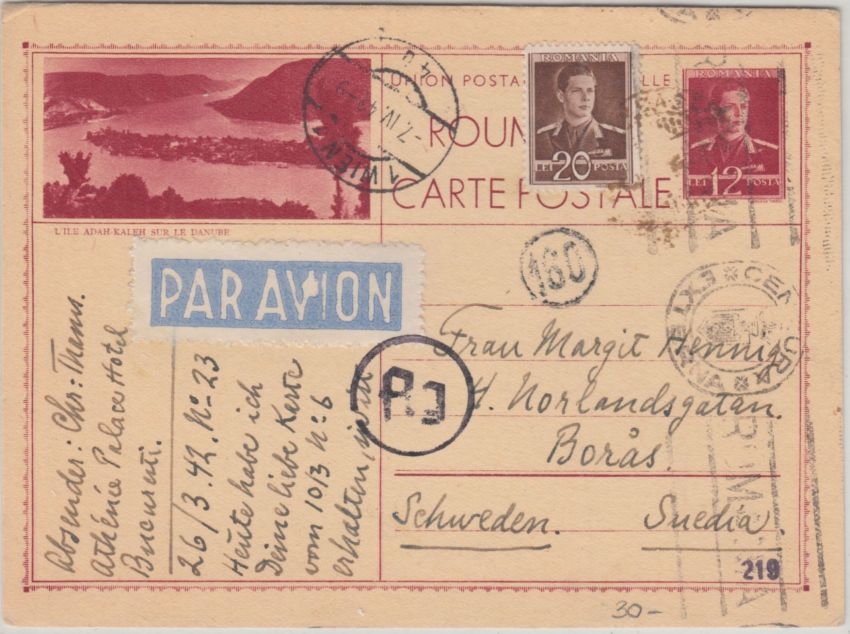 UNION POSTA LLE
ROUM
CARTE POSTALE
ROMANIA
LEI 20 POSTA
ROMANIA
LEI 12 POSTA
1 WIEN 1
-7.IV.42-9
L'ILE ADAH-KALEH SUR LE DANUBE
PAR AVION
160
Absender: Chr: Thenn.
Athénée Palace Hotel
Bucuresti.
26/3.42. No 23
Heute habe ich
Deine liebe Karte
vom 10/3 No 6
erhalten,
Frau Margit Hennig
H. Norlandsgatan.
Borås.
Schweden. Suedia.
219
30-